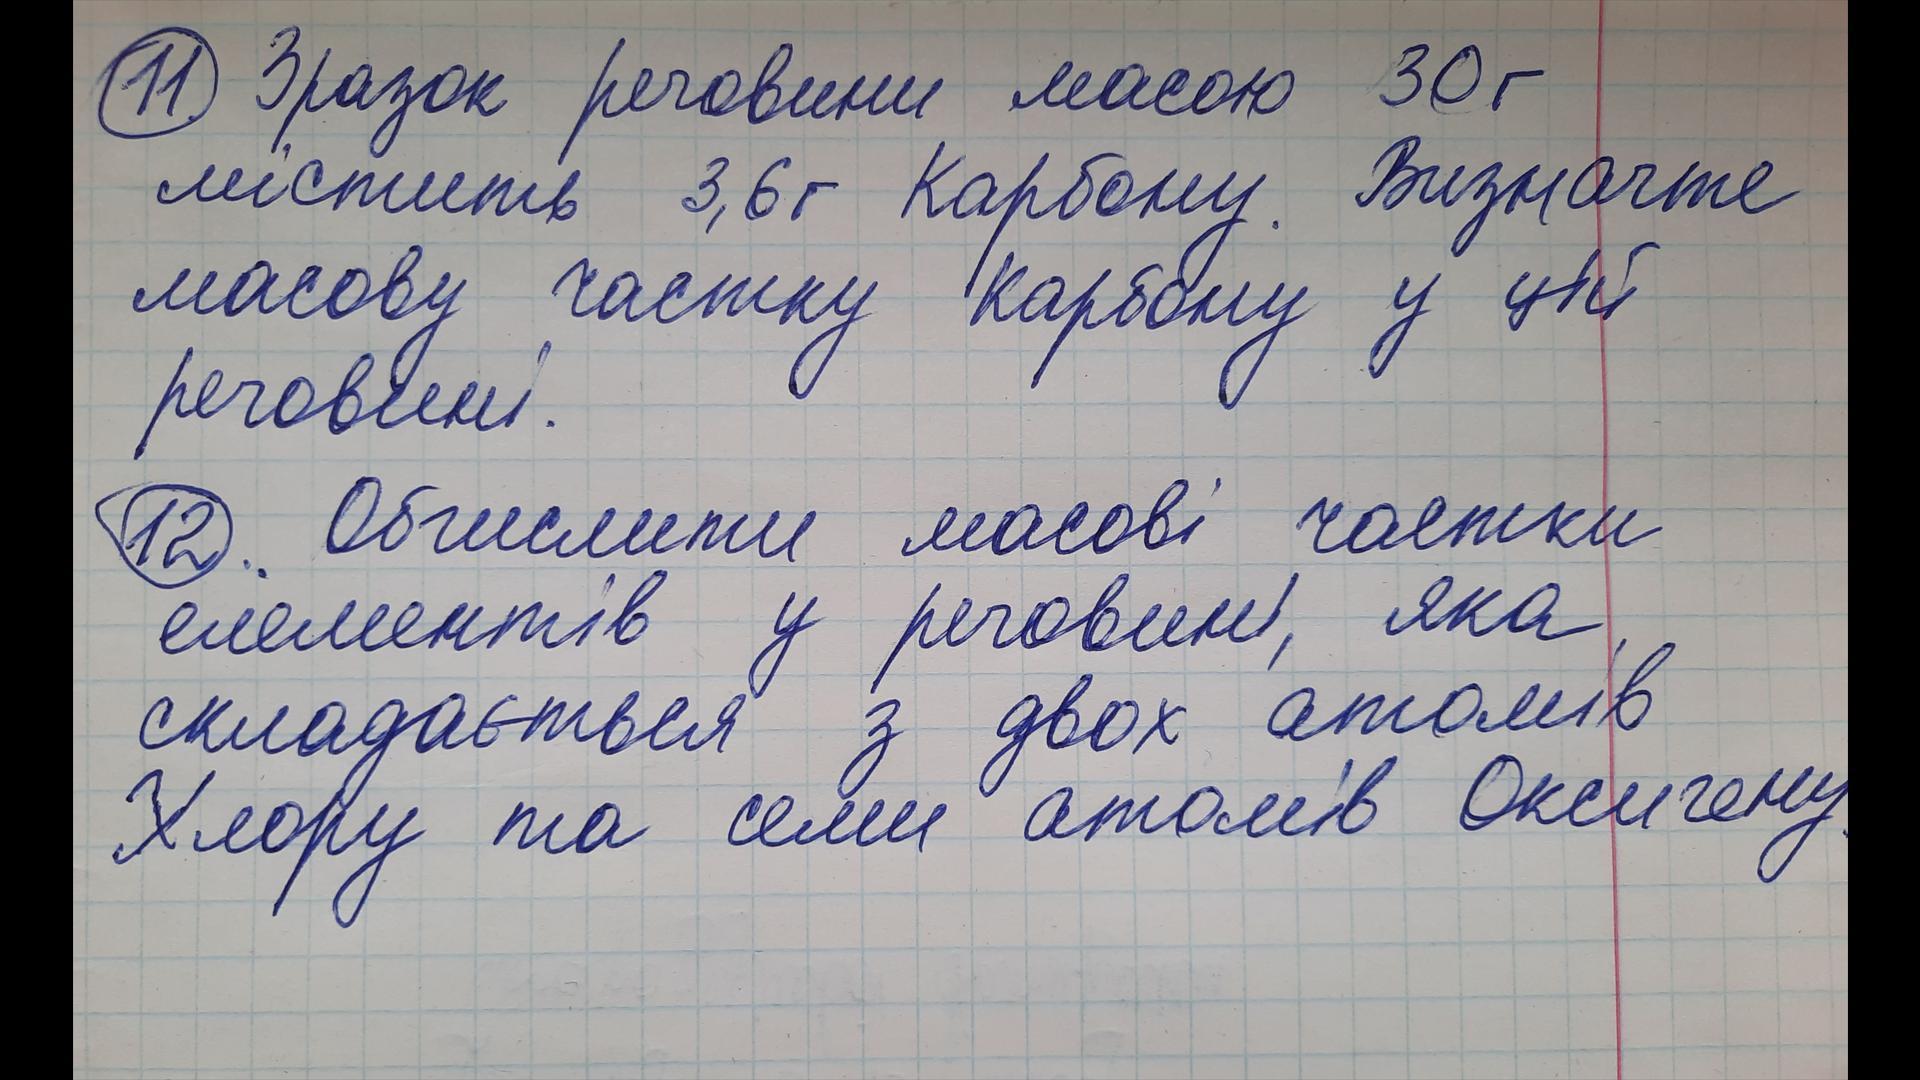 11 Зразок речовини масою 30 г
містить 3,6 г Карбону. Визначте
масову частку Карбону у цій
речовині.
12. Обчислити масові частки
елементів у речовині, яка
складається з двох атомів
Хлору та семи атомів Оксигену.